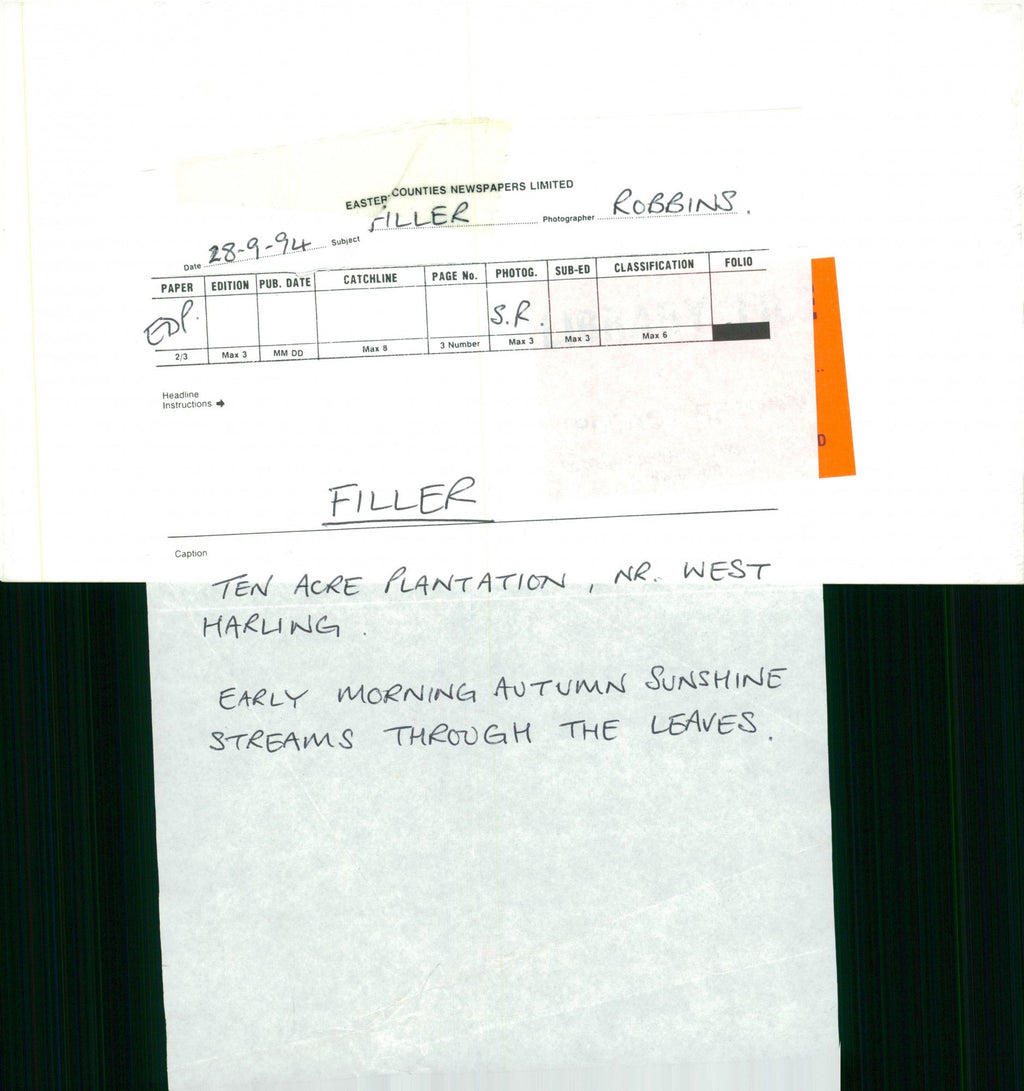 EASTER COUNTIES NEWSPAPERS LIMITED
Date 28-9-94 Subject FILLER Photographer ROBBINS.
PAPER EDITION PUB. DATE CATCHLINE PAGE No. PHOTOG. SUB-ED CLASSIFICATION FOLIO
EDP. S.R.
2/3 Max 3 MM DD Max 8 3 Number Max 3 Max 3 Max 6
Headline
Instructions
FILLER
Caption
TEN ACRE PLANTATION, NR. WEST
HARLING.
EARLY MORNING AUTUMN SUNSHINE
STREAMS THROUGH THE LEAVES.